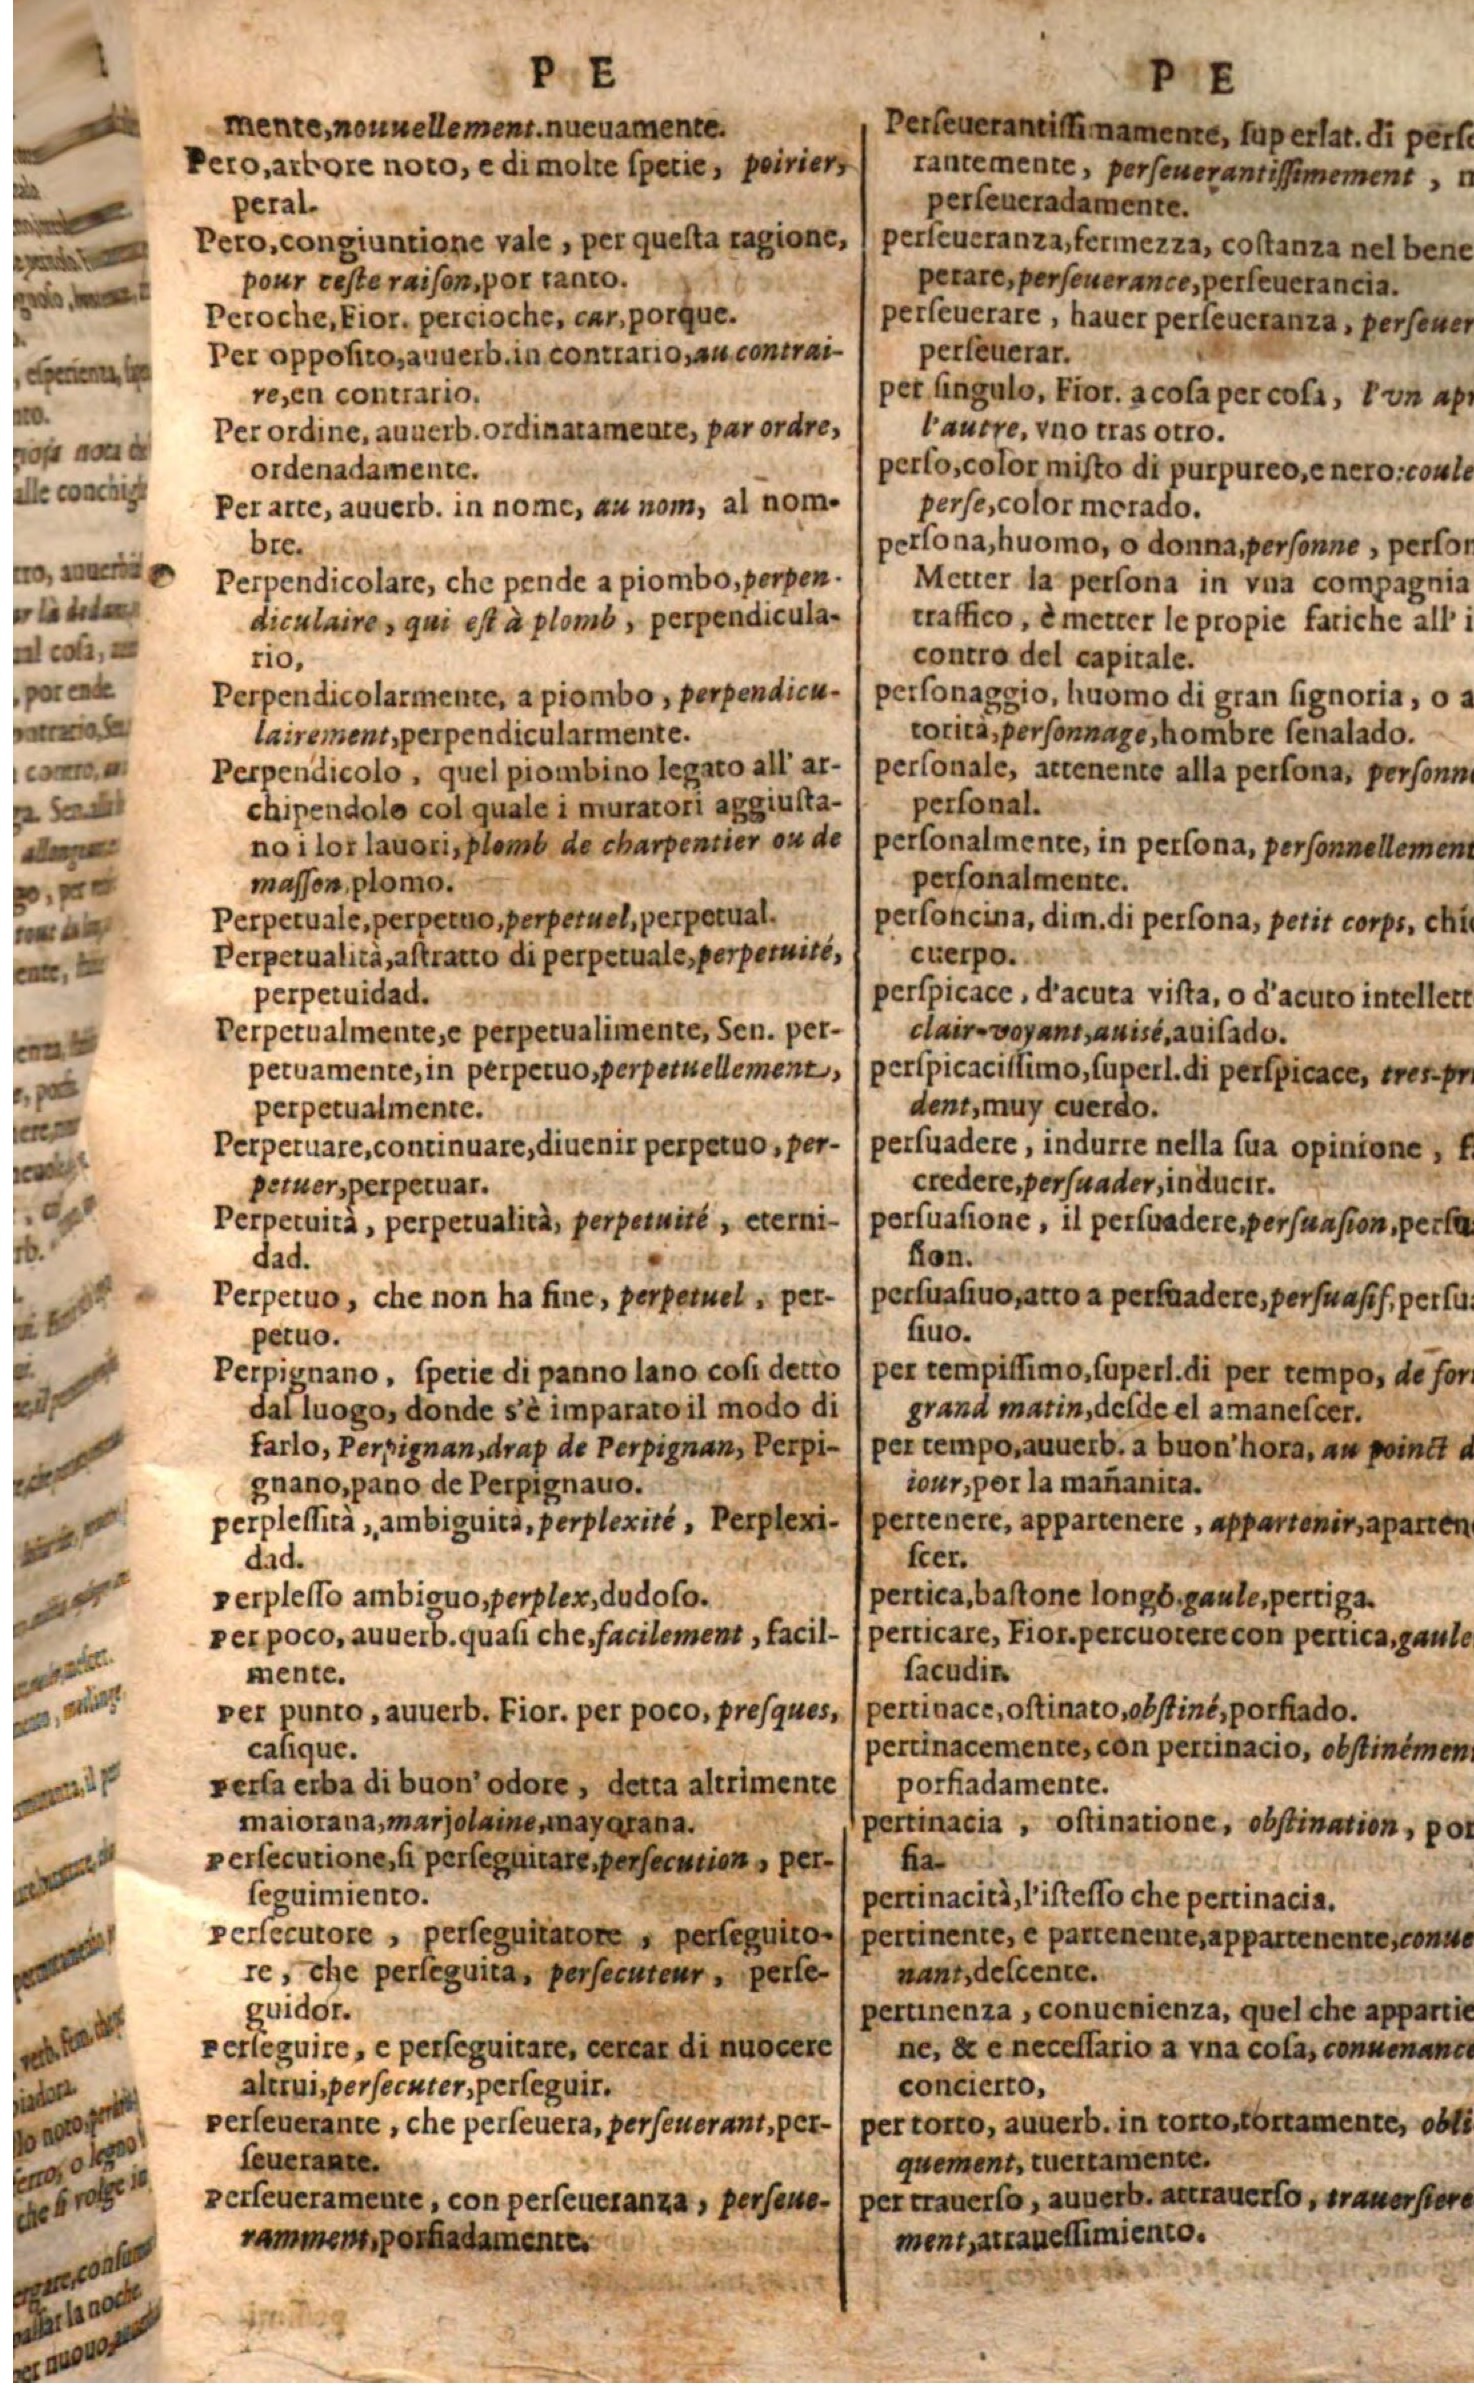 P E
mente,nouuellement.nueuamente.
Pero,arbore noto, e di molte spetie, poirier,
peral.
Pero,congiuntione vale, per questa ragione,
pour ceste raison,por tanto.
Peroche,Fior. percioche, car,porque.
Per opposito,auuerb.in contrario,au contrai-
re,en contrario.
Per ordine, auuerb.ordinatamente, par ordre,
ordenadamente.
Per arte, auuerb. in nome, au nom, al nom-
bre.
Perpendicolare, che pende a piombo,perpen-
diculaire, qui est à plomb, perpendicula-
rio,
Perpendicolarmente, a piombo, perpendicu-
lairement,perpendicularmente.
Perpendicolo, quel piombino legato all' ar-
chipendolo col quale i muratori aggiusta-
no i lor lauori,plomb de charpentier ou de
masson,plomo.
Perpetuale,perpetuo,perpetuel,perpetual.
Perpetualità,astratto di perpetuale,perpetuité,
perpetuidad.
Perpetualmente,e perpetualimente, Sen. per-
petuamente,in perpetuo,perpetuellement,
perpetualmente.
Perpetuare,continuare,diuenir perpetuo,per-
petuer,perpetuar.
Perpetuità, perpetualità, perpetuité, eterni-
dad.
Perpetuo, che non ha fine, perpetuel, per-
petuo.
Perpignano, spetie di panno lano cosi detto
dal luogo, donde s'è imparato il modo di
farlo, Perpignan,drap de Perpignan, Perpi-
gnano,pano de Perpignauo.
perplessità, ambiguità,perplexité, Perplexi-
dad.
perplesso ambiguo,perplex,dudoso.
per poco, auuerb.quasi che,facilement, facil-
mente.
per punto, auuerb. Fior. per poco, presques,
casique.
persa erba di buon' odore, detta altrimente
maiorana,marjolaine,mayorana.
persecutione,si perseguitare,persecution, per-
seguimiento.
persecutore, perseguitatore, perseguito-
re, che perseguita, persecuteur, perse-
guidor.
perseguire, e perseguitare, cercar di nuocere
altrui,persecuter,perseguir.
perseuerante, che perseuera, perseuerant,per-
seuerante.
perseueramente, con perseueranza, perseue-
ramment,porfiadamente.
P E
Perseuerantissimamente, superlat. di perse
rantemente, perseuerantissimement, m
perseueradamente.
perseueranza,fermezza, costanza nel bene
perare,perseuerance,perseuerancia.
perseuerare, hauer perseueranza, perseuer
perseuerar.
per singulo, Fior. a cosa per cosa, l'vn apr
l'autre, vno tras otro.
perso,color misto di purpureo,e nero:coule
perse,color morado.
persona,huomo, o donna,personne, person
Metter la persona in vna compagnia
traffico, è metter le propie fatiche all' i
contro del capitale.
personaggio, huomo di gran signoria, o a
torità,personnage,hombre senalado.
personale, attenente alla persona, personne
personal.
personalmente, in persona, personnellement
personalmente.
personcina, dim.di persona, petit corps, chic
cuerpo.
perspicace, d'acuta vista, o d'acuto intellett
clair-voyant,auisé,auisado.
perspicacissimo,superl.di perspicace, tres-pru
dent,muy cuerdo.
persuadere, indurre nella sua opinione, f
credere,persuader,inducir.
persuasione, il persuadere,persuasion,persua
sion.
persuasiuo,atto a persuadere,persuasif,persua
siuo.
per tempissimo,superl.di per tempo, de fort
grand matin,desde el amanescer.
per tempo,auuerb. a buon'hora, au poinct d
iour,por la mañanita.
pertenere, appartenere, appartenir,aparten
scer.
pertica,bastone longo,gaule,pertiga.
perticare, Fior.percuotere con pertica,gaule
sacudir.
pertinace,ostinato,obstiné,porfiado.
pertinacemente, con pertinacio, obstinément
porfiadamente.
pertinacia, ostinatione, obstination, por
fia.
pertinacità,l'istesso che pertinacia.
pertinente, e partenente,appartenente,conue
nant,descente.
pertinenza, conuenienza, quel che appartie
ne, & e necessario a vna cosa, conuenance
concierto,
per torto, auuerb. in torto,tortamente, obli
quement, tuertamente.
per trauerso, auuerb. attrauerso, trauersiere
ment,attrauessimiento.